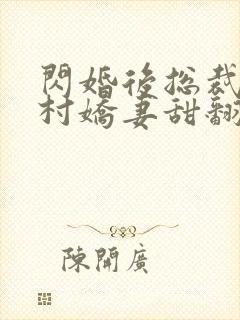 閃婚後總裁
村嬌妻甜翻
陳開廣